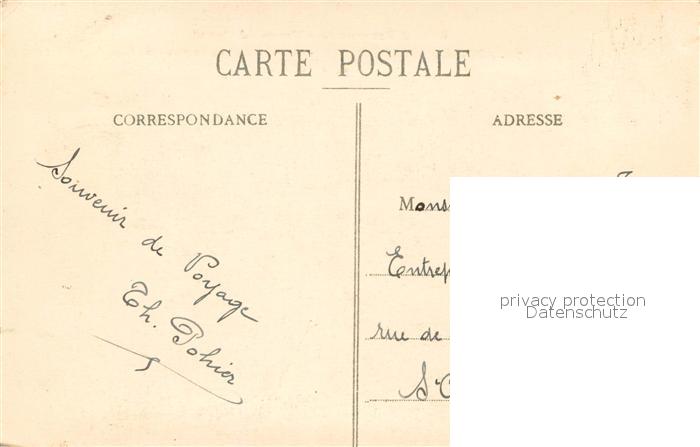 CARTE POSTALE
CORRESPONDANCE
ADRESSE
Souvenir de Voyage
Th. Pohier
Mons
Entrep
rue de
privacy protection
Datenschutz